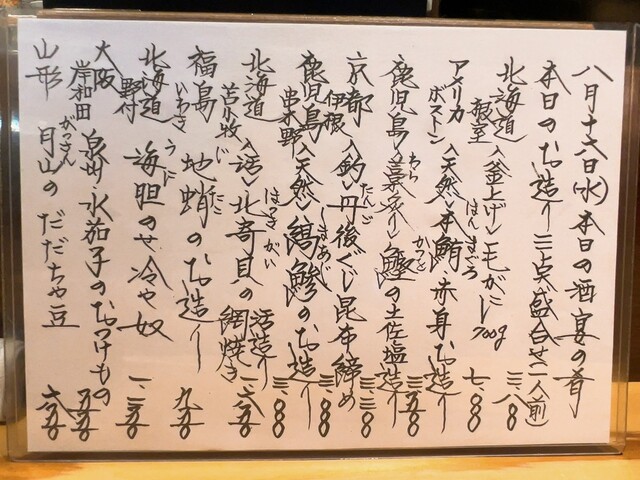 八月十六日(水)本日の酒宴の肴
本日のお造り三点盛合せ(二人前) 三、八〇〇
北海道 根室 〈釜上げ〉毛がに 700g 七、八〇〇
アメリカ ボストン 〈天然〉本鮪 ほんまぐろ 赤身お造り 三、五〇〇
鹿児島 〈藁久〉 わら 鰹 かつを の土佐塩造り 三、三〇〇
京都 伊根 〈釣〉丹後ぐじ たんご 昆布締め 三、三〇〇
鹿児島 串木野 〈天然〉縞鯵 しまあじ のお造り 三、八〇〇
北海道 苫小牧 〈活〉北寄貝 ほっきがい 活造り 網焼き 二、六〇〇
福島 いわき 地蛸 じたこ のお造り 九五〇
北海道 野付 海胆 うに のせ冷や奴 一、三五〇
大阪 岸和田 泉州水茄子のおつけもの 五五〇
山形 月山 がっさん のだだちゃ豆 六五〇